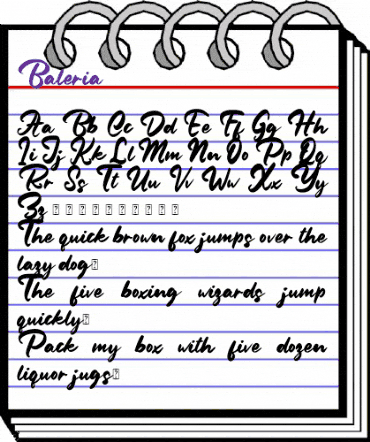 Baleria
Aa Bb Cc Dd Ee Ff Gg Hh
Ii Jj Kk Ll Mm Nn Oo Pp Qq
Rr Ss Tt Uu Vv Ww Xx Yy
Zz
The quick brown fox jumps over the
lazy dog
The five boxing wizards jump
quickly
Pack my box with five dozen
liquor jugs